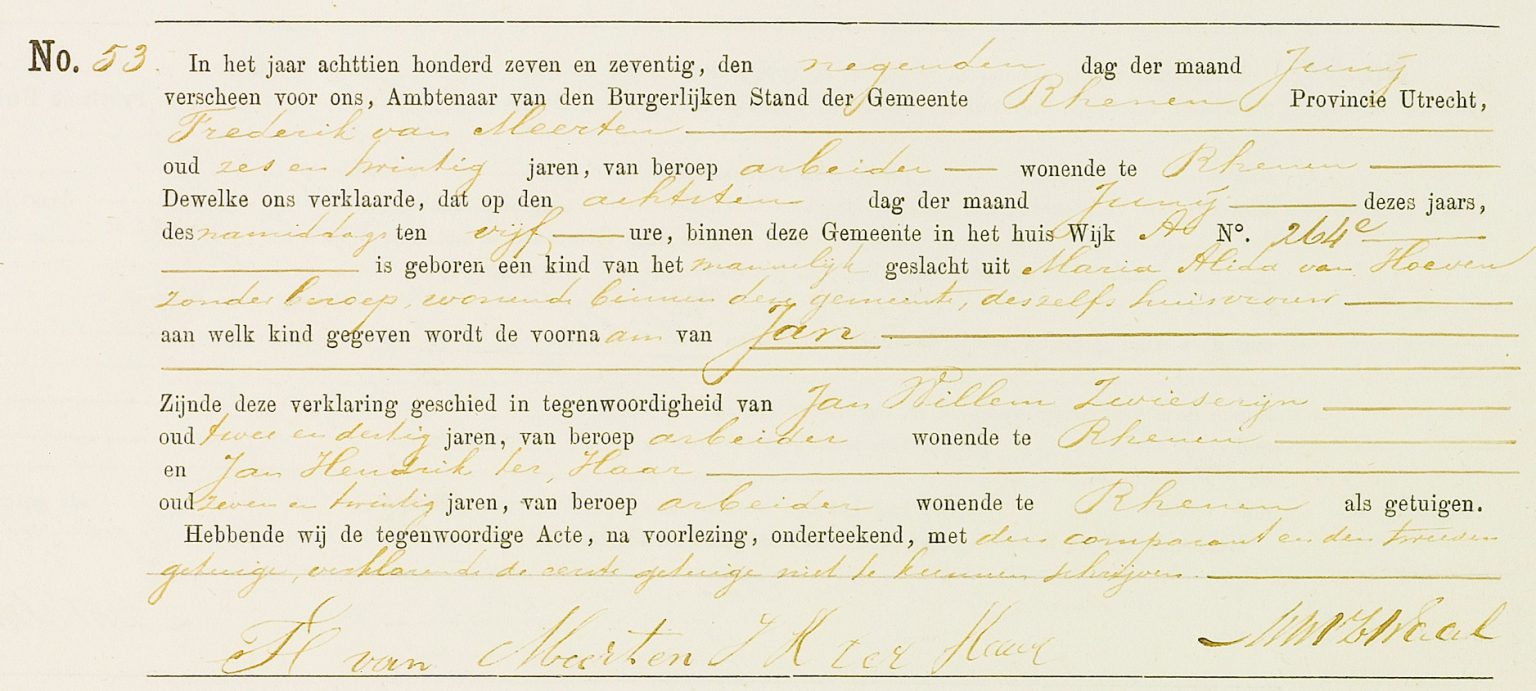 No. 53. In het jaar achttien honderd zeven en zeventig, den negenden dag der maand Junij
verscheen voor ons, Ambtenaar van den Burgerlijken Stand der Gemeente Rhenen Provincie Utrecht,
Frederik van Meerten
oud zes en twintig jaren, van beroep arbeider wonende te Rhenen
Dewelke ons verklaarde, dat op den achtsten dag der maand Junij dezes jaars,
des namiddags ten vijf ure, binnen deze Gemeente in het huis Wijk A N°. 264c
is geboren een kind van het mannelijk geslacht uit Maria Alida van Hoeven
zonder beroep, wonende binnen deze gemeente, deszelfs huisvrouw
aan welk kind gegeven wordt de voornaam van Jan
Zijnde deze verklaring geschied in tegenwoordigheid van Jan Willem
oud twee en dertig jaren, van beroep arbeider wonende te Rhenen
en Jan Hendrik ter Haar
oud zeven en twintig jaren, van beroep arbeider wonende te Rhenen als getuigen.
Hebbende wij de tegenwoordige Acte, na voorlezing, onderteekend, met den comparant en den tweeden
getuige, verklarende de eerste getuige niet te kunnen schrijven.
F van Meerten J H ter Haar